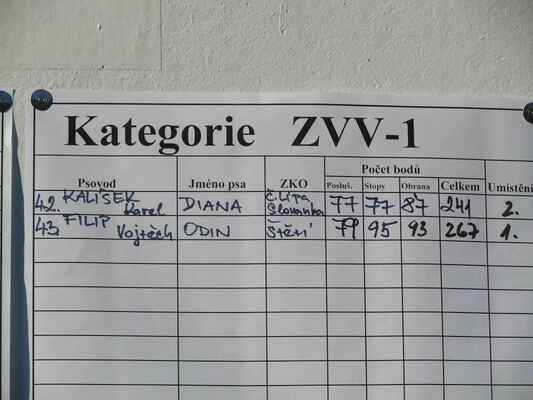 Kategorie ZVV-1
Počet bodů
Psovod Jméno psa ZKO Posluš. Stopy Obrana Celkem Umístění
42. KALIŠEK Karel DIANA Č.Lípa Slovanka 77 77 87 241 2.
43. FILIP Vojtěch ODIN Štětí 79 95 93 267 1.